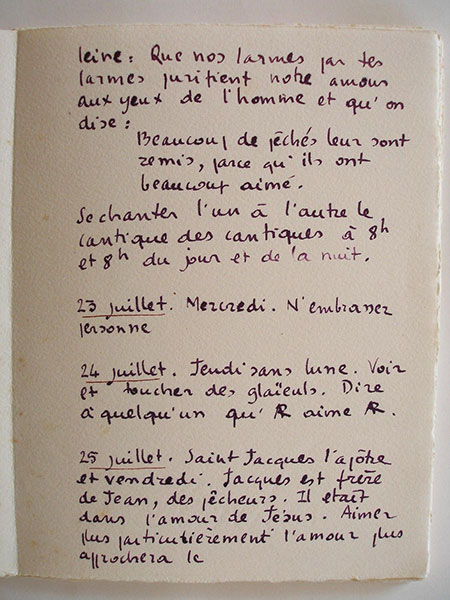 leine : Que nos larmes par tes
larmes purifient notre amour
aux yeux de l'homme et qu'on
dise :
Beaucoup de pêchés leur sont
remis, parce qu'ils ont
beaucoup aimé.
Se chanter l'un à l'autre le
cantique des cantiques à 8h
et 8h du jour et de la nuit.
23 juillet. Mercredi. N'embrasser
personne
24 juillet. Jeudi sans lune. Voir
et toucher des glaïeuls. Dire
à quelqu'un qu' aime .
25 juillet. Saint Jacques l'apôtre
et vendredi. Jacques est frère
de Jean, des pêcheurs. Il était
dans l'amour de Jésus. Aimer
plus particulièrement l'amour plus
approchera le